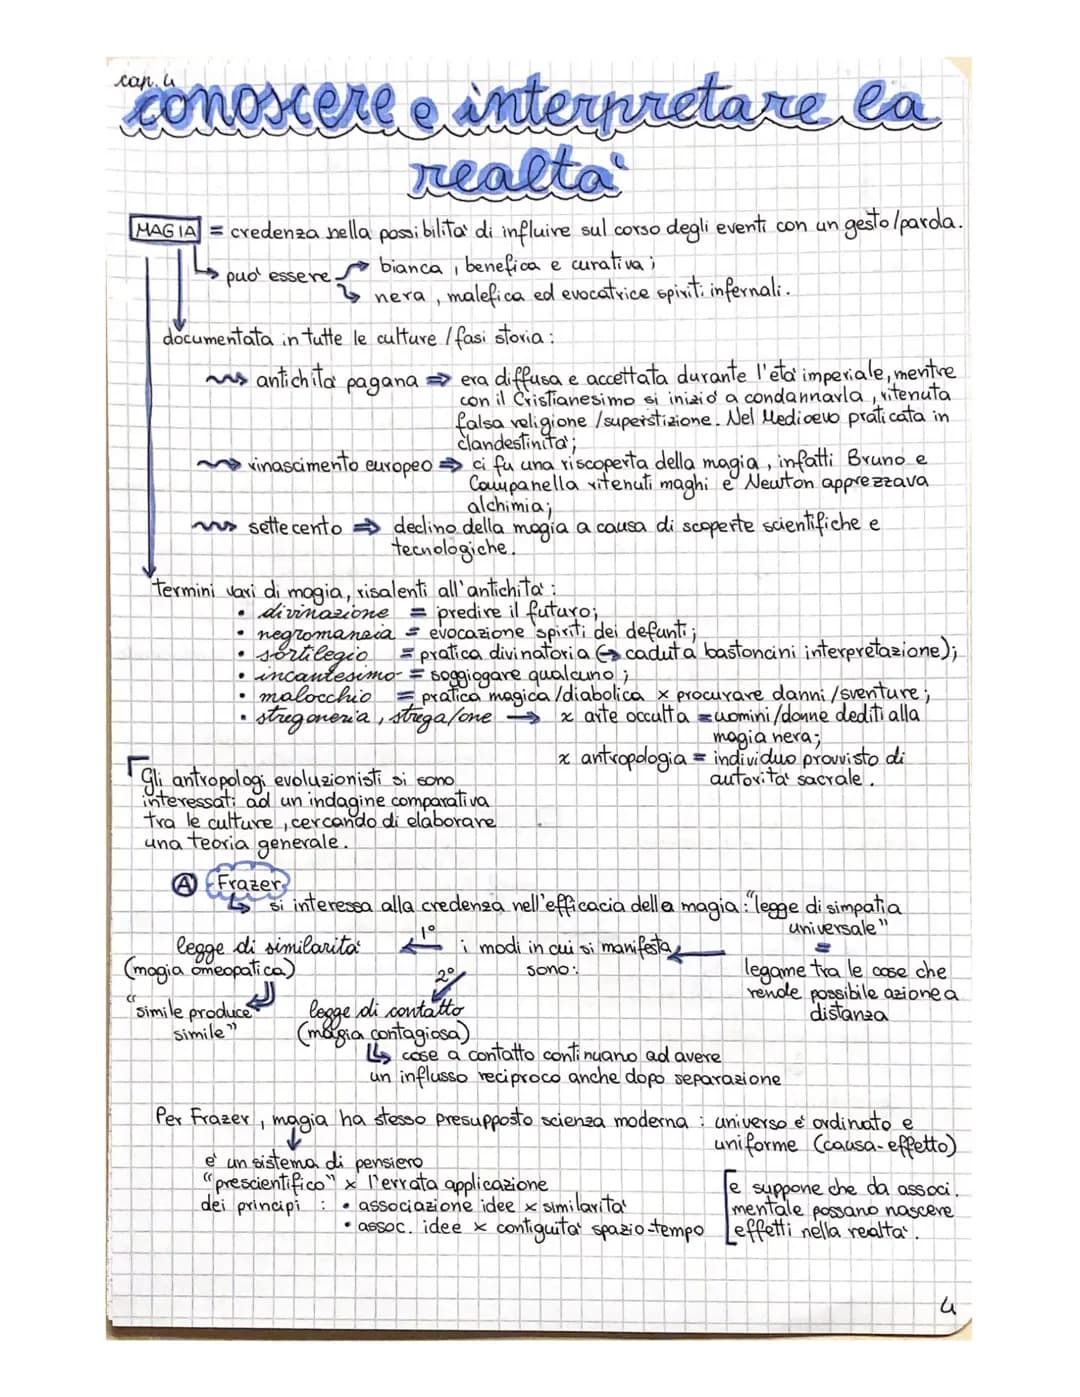 cap. 4
conoscere e interpretare la
realta'
MAGIA = credenza nella possibilita' di influire sul corso degli eventi con un gesto/parola.
puo' essere bianca, benefica e curativa;
nera, malefica ed evocatrice spiriti infernali.
documentata in tutte le culture / fasi storia:
antichita' pagana => era diffusa e accettata durante l'eta' imperiale, mentre
con il Cristianesimo si inizio' a condannarla, ritenuta
falsa religione / superstizione. Nel Medioevo praticata in
clandestinita';
rinascimento europeo => ci fu una riscoperta della magia, infatti Bruno e
Campanella ritenuti maghi e Newton apprezzava
alchimia;
settecento => declino della magia a causa di scoperte scientifiche e
tecnologiche.
termini vari di magia, risalenti all'antichita':
• divinazione = predire il futuro;
• negromanzia = evocazione spiriti dei defunti;
• sortilegio = pratica divinatoria (→ caduta bastoncini interpretazione);
• incantesimo = soggiogare qualcuno;
• malocchio = pratica magica / diabolica x procurare danni / sventure;
• stregoneria, strega/one → x arte occulta = uomini/donne dediti alla
magia nera;
x antropologia = individuo provvisto di
autorita' sacrale.
Gli antropologi evoluzionisti si sono
interessati ad un indagine comparativa
tra le culture, cercando di elaborare
una teoria generale.
A Frazer
si interessa alla credenza nell'efficacia della magia: "legge di simpatia
universale"
=
legame tra le cose che
rende possibile azione a
distanza
i modi in cui si manifesta
sono:
1°
legge di similarita'
(magia omeopatica)
"simile produce
simile"
2°
legge di contatto
(magia contagiosa)
cose a contatto continuano ad avere
un influsso reciproco anche dopo separazione
Per Frazer, magia ha stesso presupposto scienza moderna: universo e' ordinato e
uniforme (causa-effetto)
e' un sistema di pensiero
"prescientifico" x l'errata applicazione
dei principi : • associazione idee x similarita'
• assoc. idee x contiguita' spazio-tempo
e suppone che da associ.
mentale possano nascere
effetti nella realta'.
4